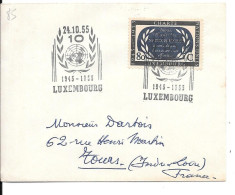 85
24.10.55
10
1945-1955
LUXEMBOURG
CHARTE
80 C
1945-1955
LUXEMBOURG
Monsieur Darbois
62 rue Henri Martin
Tours (Indre & Loire)
France